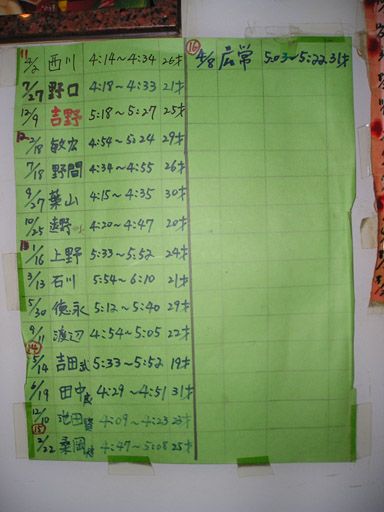 11
2/2 西川 4:14～4:34 26才
7/27 野口 4:18～4:33 21才
12/9 吉野 5:18～5:27 25才
12
2/18 敏宏 4:54～5:24 29才
7/18 野間 4:34～4:55 26才
9/27 葉山 4:15～4:35 30才
10/25 遠野 4:20～4:47 20才
13
1/16 上野 5:33～5:52 24才
3/13 石川 5:54～6:10 21才
5/30 徳永 5:12～5:40 29才
9/11 渡辺 4:54～5:05 22才
14
5/14 吉田 5:33～5:52 19才
6/19 田中 4:29～4:51 31才
12/10 池田 4:09～4:23 23才
15
2/22 桑岡 4:47～5:08 25才
16
4/8 広常 5:03～5:22 31才